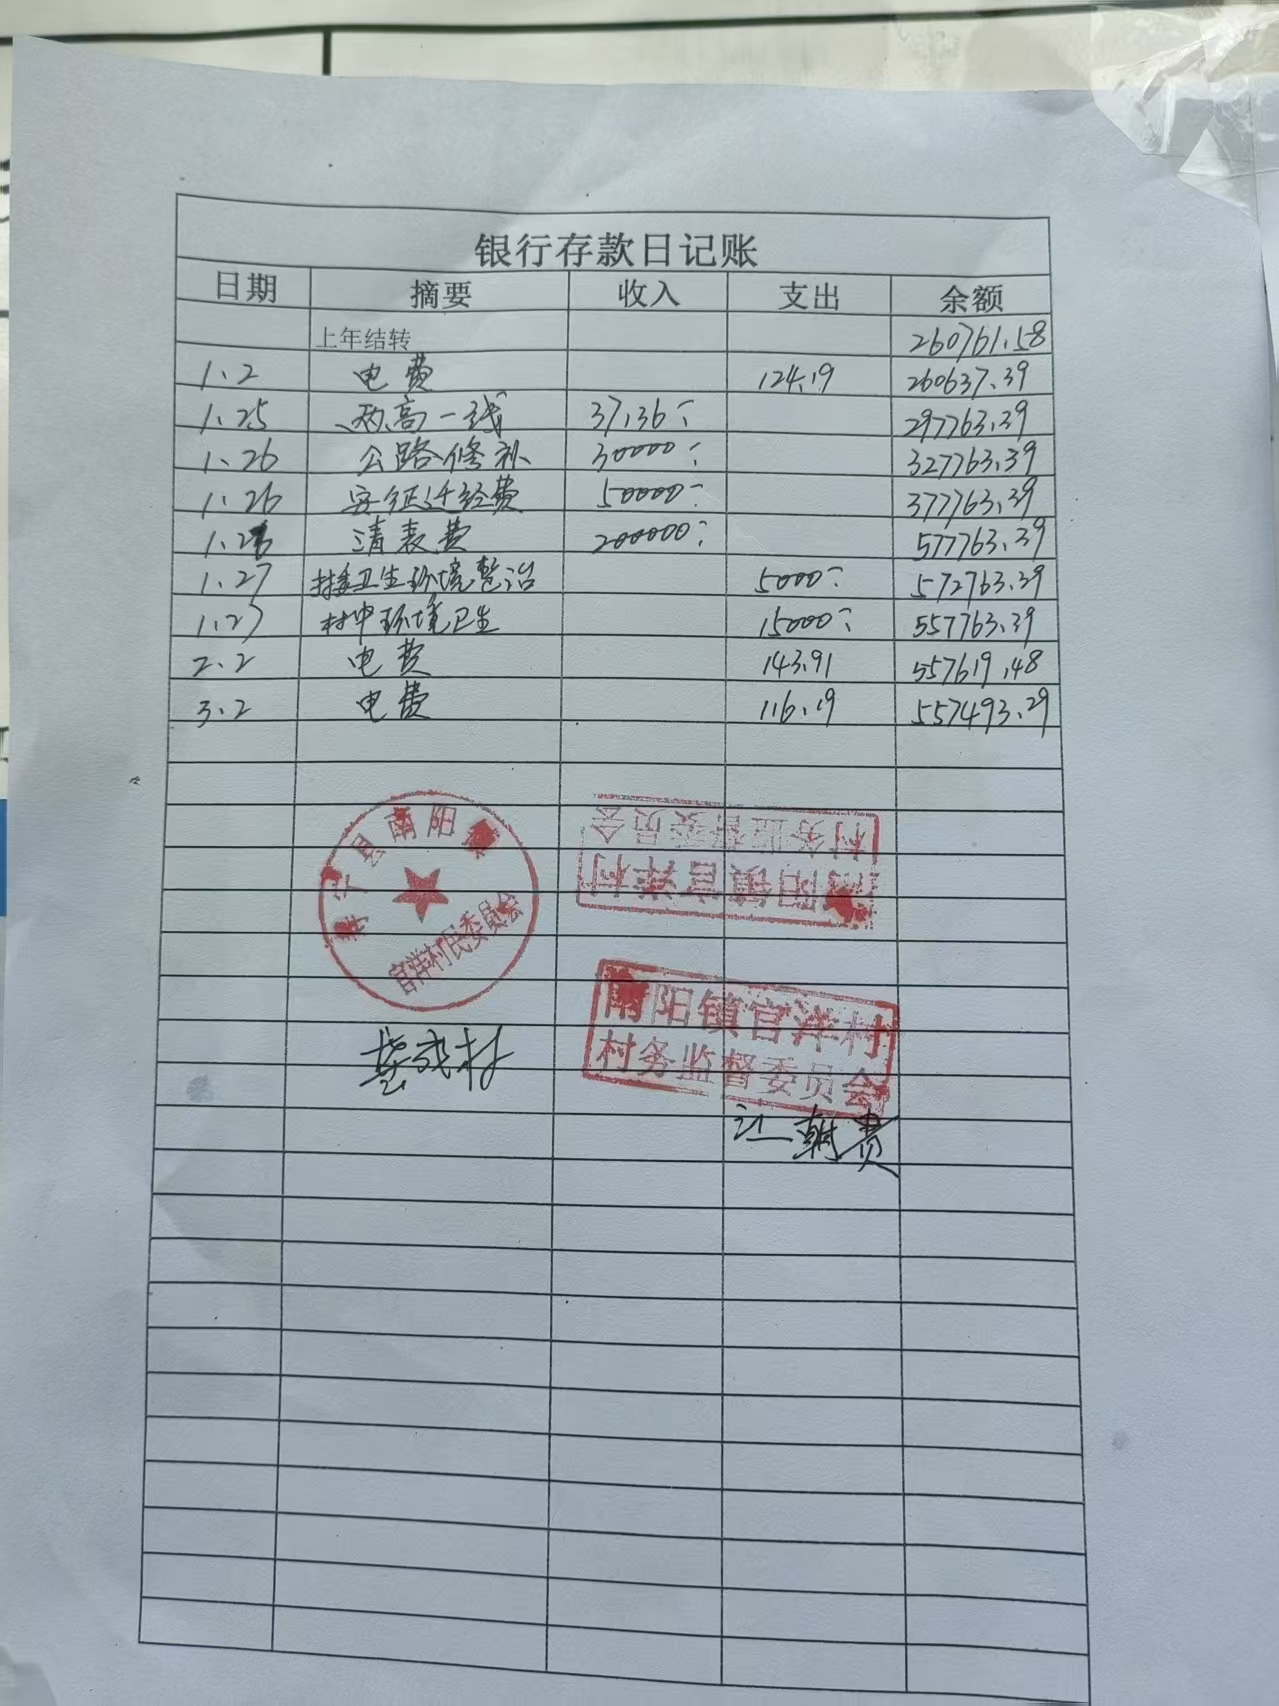 银行存款日记账
日期 摘要 收入 支出 余额
上年结转 260761.58
1.2 电费 124.19 260637.39
1.25 两高一线 37136 297763.39
1.26 公路修补 30000 327763.39
1.26 征迁经费 50000 377763.39
1.26 清表费 200000 577763.39
1.27 卫生环境整治 5000 572763.39
1.27 村中环境卫生 15000 557763.39
2.2 电费 143.91 557619.48
3.2 电费 116.19 557493.29
县南阳镇
官洋村民委员会
南阳镇官洋村
村务监督委员会
南阳镇官洋村
村务监督委员会
江朝贵